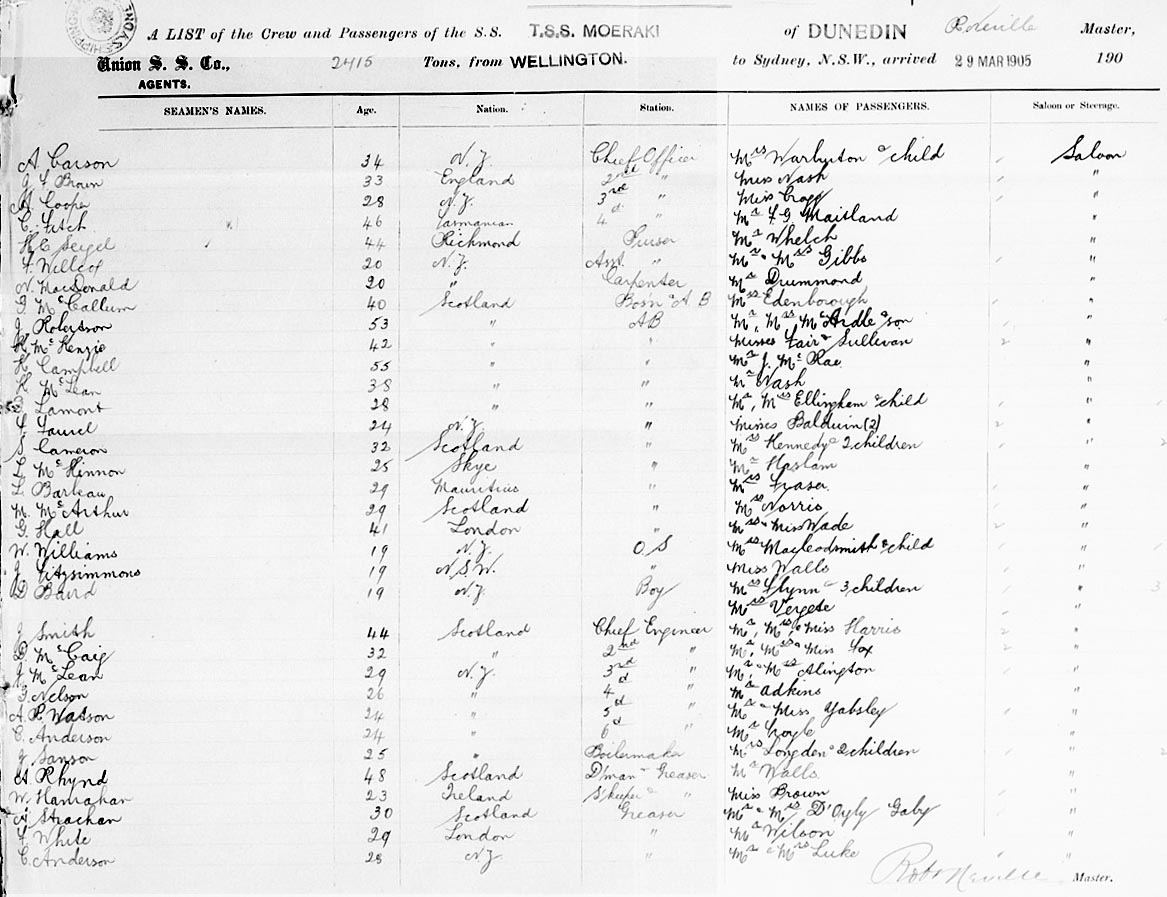 A LIST of the Crew and Passengers of the S.S. T.S.S. MOERAKI of DUNEDIN R. Neville Master,
Union S. S. Co., 2415 Tons, from WELLINGTON. to Sydney, N.S.W., arrived 29 MAR 1905 190
AGENTS.
SEAMEN'S NAMES. Age. Nation. Station. NAMES OF PASSENGERS. Saloon or Steerage.
A. Carson 34 N.Z. Chief Officer Mrs Warburton & child Saloon
Brown 33 England 2nd " Miss Nash "
A Cooper 28 N.Z. 3rd " Miss Cragg "
C. Fitch 46 Tasmanian 4 " Mr F G Maitland "
H E Seigel 44 Richmond Purser Mr Whelch "
F. Willcox 20 N.Z. Asst. " Mr & Mrs Gibbs "
N. MacDonald 20 " Carpenter Mr Drummond "
McCallum 40 Scotland Bosn & A B Mrs Edenborough "
J. Robertson 53 " AB Mr, Mrs McArdle & son "
McKenzie 42 " " Misses Fair & Sullivan 2 "
Campbell 55 " " Mr J. McRae "
McLean 38 " " Mr Nash "
Lamont 28 " " Mr, Mrs Ellingham & child "
24 N.Z. " Misses Baldwin (2) 2 "
S. Cameron 32 Scotland " Mrs Kennedy & 2 children " 2
McKinnon 25 Skye " Mr Haslam "
L. Barbeau 29 Mauritius " Mrs Fraser "
McArthur 29 Scotland " Mrs Norris "
G. Hall 41 London " Mrs & Miss Wade 2 "
W. Williams 19 N.Z. O S Mrs Macleodsmith & child "
J. Fitzsimmons 19 N.S.W. " Miss Walls "
D Baird 19 N.Z. Boy Mrs Flynn & 3 children " 3
Mrs Vergete "
J Smith 44 Scotland Chief Engineer Mr, Mrs & Miss Harris 2 "
D. McCaig 32 " 2nd " Mr, Mrs & Miss Fox 2 "
J. McLean 29 N.Z. 3rd " Mr & Mrs Alington "
Nelson 26 " 4 " Mr Adkins "
A. R. Watson 24 " 5 " Mr & Miss Yabsley "
C. Anderson 24 " 6 " Mr "
J. Sanson 25 " Boilermaker Mrs Longden & 2 children " 2
A. Rhynd 48 Scotland D'man & Greaser Mr Walls "
W. Hanrahan 23 Ireland S'keeper & " Miss Brown "
A. Strachan 30 Scotland Greaser Mr & Mrs D'Oyly Gaby "
F. White 29 London " Mr Wilson "
C. Anderson 28 N.Z. " Mr & Mrs Luke "
Robt Neville Master.